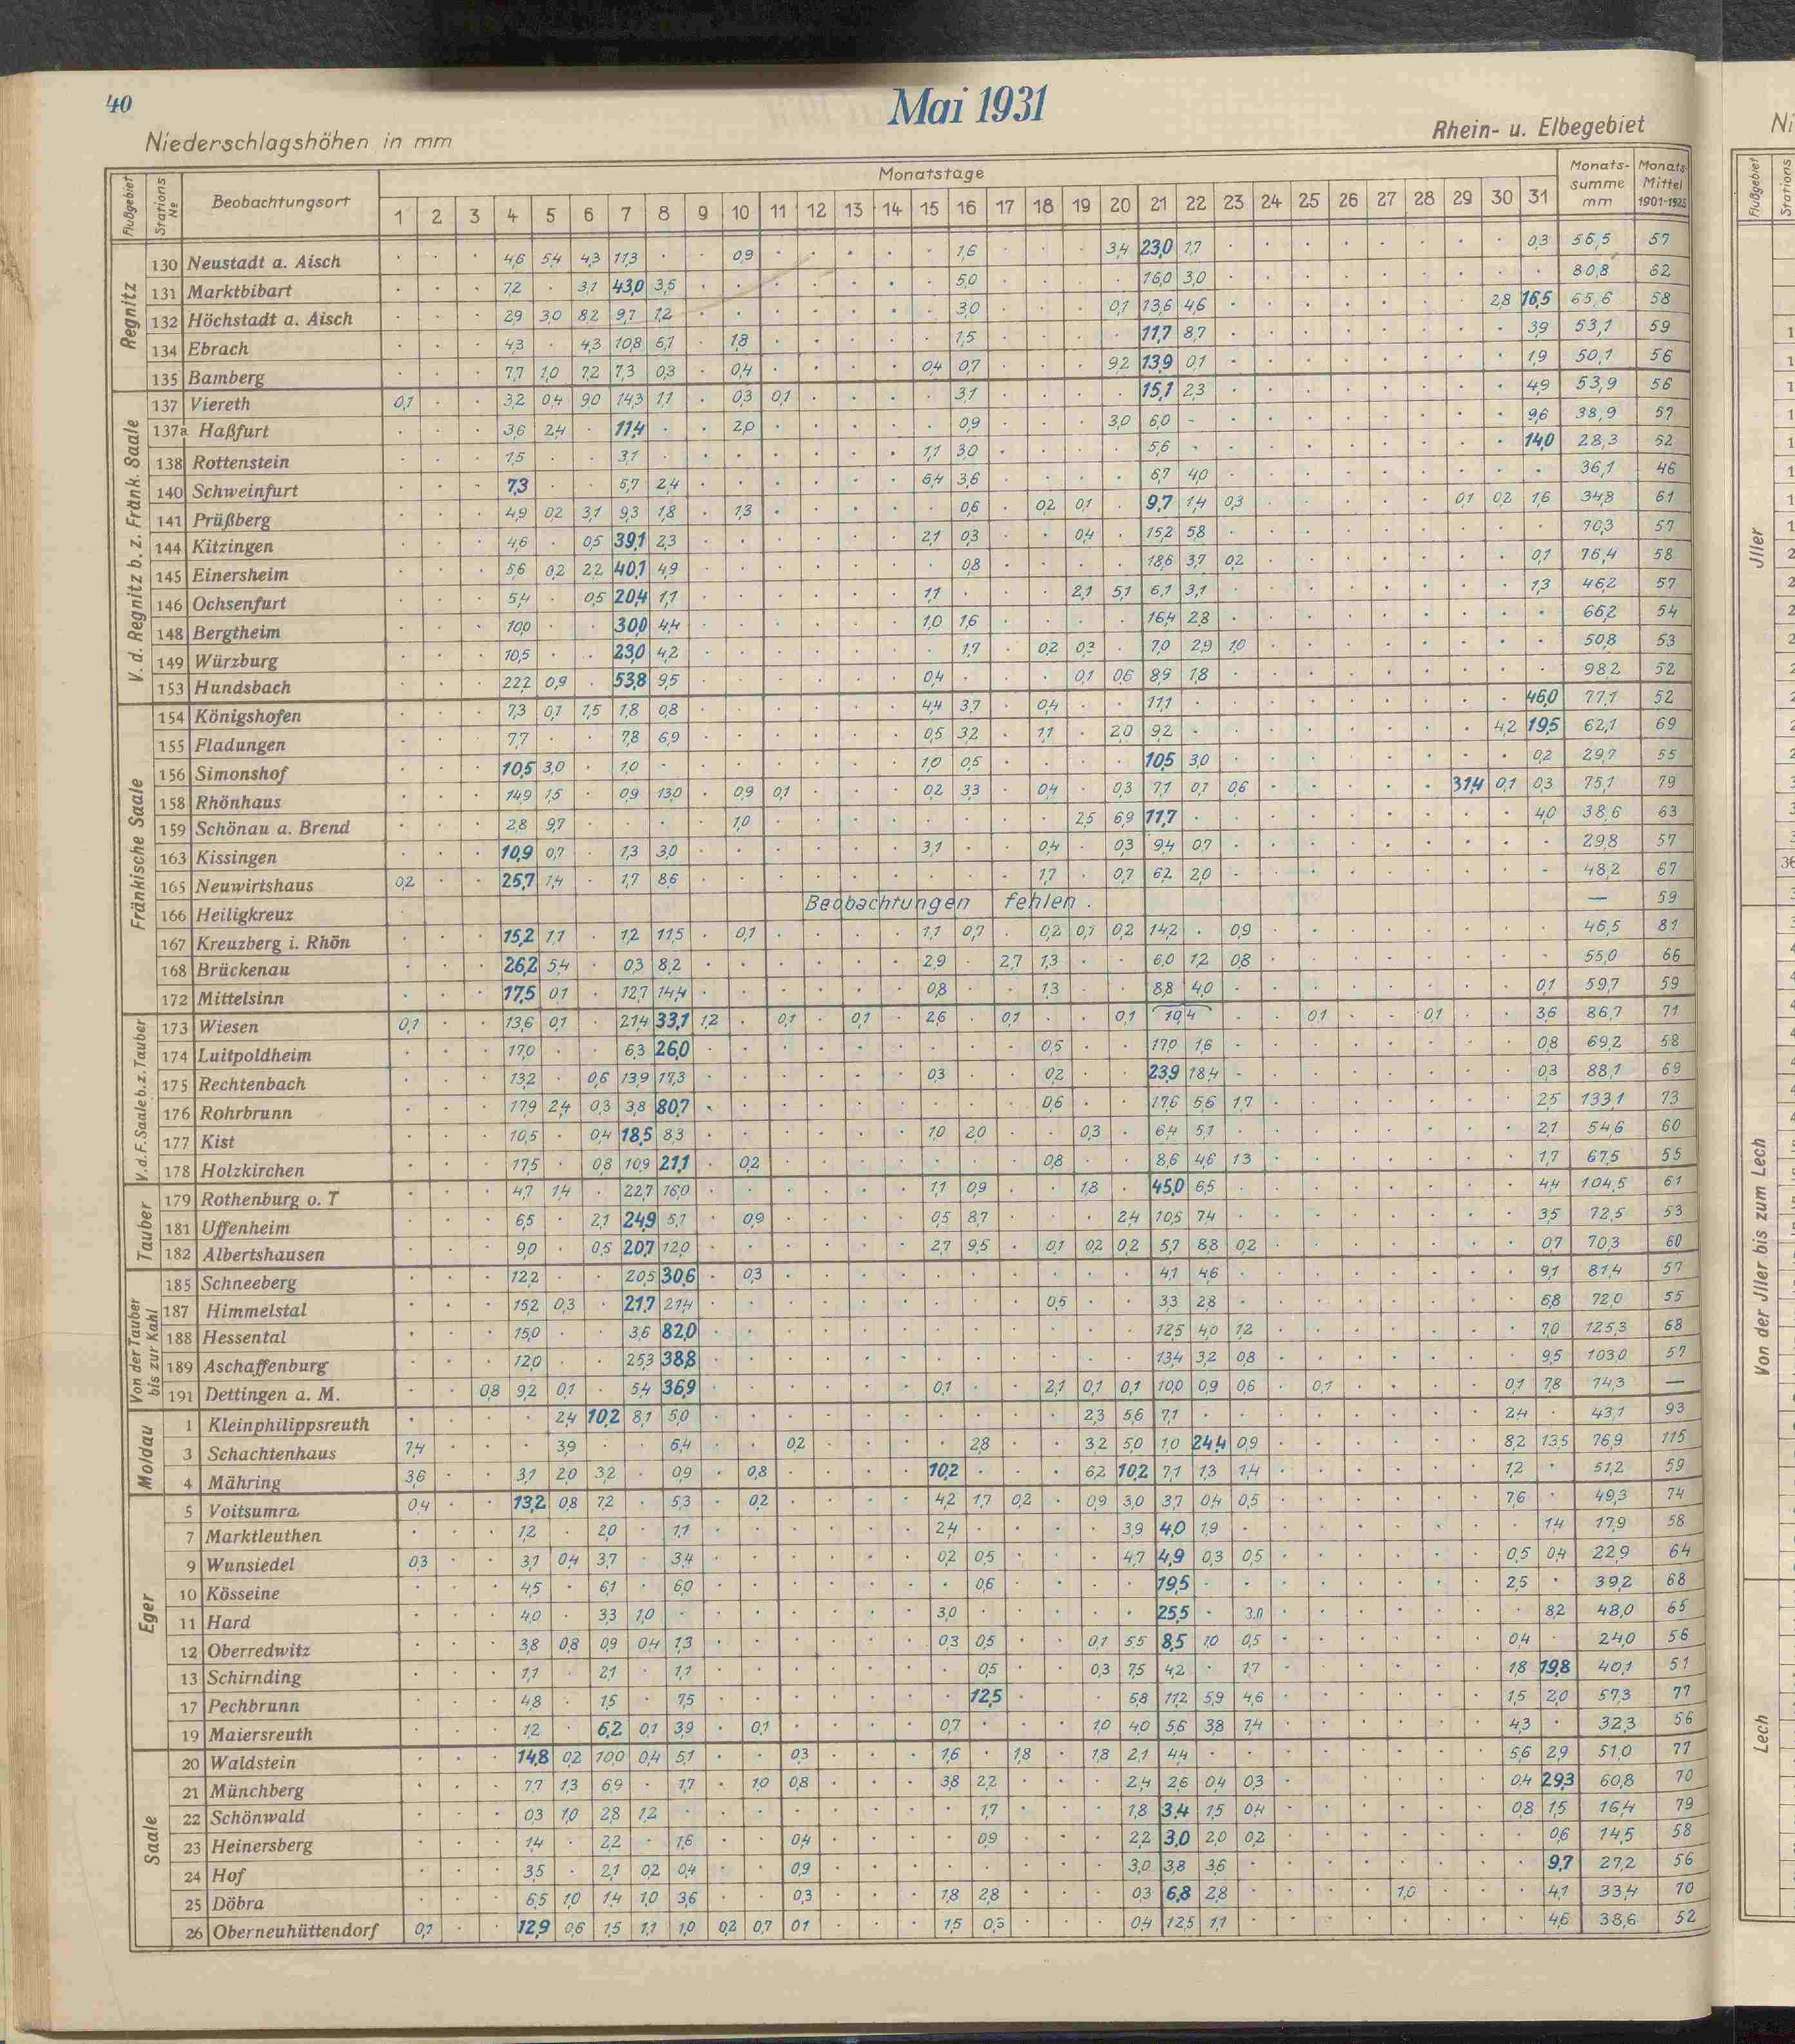 40
Mai 1931
Niederschlagshöhen in mm
Rhein- u. Elbegebiet
Flußgebiet Stations № Beobachtungsort Monatstage Monats-summe mm Monats-Mittel 1901-1925
1 2 3 4 5 6 7 8 9 10 11 12 13 14 15 16 17 18 19 20 21 22 23 24 25 26 27 28 29 30 31
Regnitz
130 Neustadt a. Aisch . . . 4,6 5,4 4,3 11,3 . . 0,9 . . . . . 1,6 . . . 3,4 23,0 1,7 . . . . . . . . 0,3 56,5 57
131 Marktbibart . . . 7,2 . 3,1 43,0 3,5 . . . . . . . 5,0 . . . . 16,0 3,0 . . . . . . . . . 80,8 62
132 Höchstadt a. Aisch . . . 2,9 3,0 8,2 9,7 1,2 . . . . . . . 3,0 . . . 0,1 13,6 4,6 . . . . . . . 2,8 16,5 65,6 58
134 Ebrach . . . 4,3 . 4,3 10,8 6,1 . 1,8 . . . . . 1,5 . . . . 11,7 8,7 . . . . . . . . 3,9 53,1 59
135 Bamberg . . . 7,7 1,0 7,2 7,3 0,3 . 0,4 . . . . 0,4 0,7 . . . 9,2 13,9 0,1 . . . . . . . . 1,9 50,1 56
V. d. Regnitz b. z. Fränk. Saale
137 Viereth 0,1 . . 3,2 0,4 9,0 14,3 1,1 . 0,3 0,1 . . . . 3,1 . . . . 15,1 2,3 . . . . . . . . 4,9 53,9 56
137a Haßfurt . . . 3,6 2,4 . 11,4 . . 2,0 . . . . . 0,9 . . . 3,0 6,0 - . . . . . . . . 9,6 38,9 57
138 Rottenstein . . . 1,5 . . 3,1 . . . . . . . 1,1 3,0 . . . . 5,6 . . . . . . . . . 14,0 28,3 52
140 Schweinfurt . . . 7,3 . . 6,7 2,4 . . . . . . 6,4 3,6 . . . . 6,7 4,0 . . . . . . . . . 36,1 46
141 Prüßberg . . . 4,9 0,2 3,1 9,3 1,8 . 1,3 . . . . . 0,6 . 0,2 0,1 . 9,7 1,4 0,3 . . . . . 0,1 0,2 1,6 34,8 61
144 Kitzingen . . . 4,6 . 0,5 39,1 2,3 . . . . . . 2,1 0,3 . . 0,4 . 15,2 5,8 . . . . . . . . . 70,3 57
145 Einersheim . . . 5,6 0,2 2,2 40,1 4,9 . . . . . . . 0,8 . . . . 18,6 3,7 0,2 . . . . . . . 0,1 76,4 58
146 Ochsenfurt . . . 5,4 . 0,5 20,4 1,1 . . . . . . 1,1 . . . 2,1 5,1 6,1 3,1 . . . . . . . . 1,3 46,2 57
148 Bergtheim . . . 10,0 . . 30,0 4,4 . . . . . . 1,0 1,6 . . . . 16,4 2,8 . . . . . . . . . 66,2 54
149 Würzburg . . . 10,5 . . 23,0 4,2 . . . . . . . 1,7 . 0,2 0,3 . 7,0 2,9 1,0 . . . . . . . . 50,8 53
153 Hundsbach . . . 22,2 0,9 . 53,8 9,5 . . . . . . 0,4 . . . 0,1 0,6 8,9 1,8 . . . . . . . . . 98,2 52
Fränkische Saale
154 Königshofen . . . 7,3 0,1 1,5 1,8 0,8 . . . . . . 4,4 3,7 . 0,4 . . 11,1 . . . . . . . . . 46,0 77,1 52
155 Fladungen . . . 7,7 . . 7,8 6,9 . . . . . . 0,5 3,2 . 1,1 . 2,0 9,2 . . . . . . . . 4,2 19,5 62,1 69
156 Simonshof . . . 10,5 3,0 . 1,0 . . . . . . . 1,0 0,5 . . . . 10,5 3,0 . . . . . . . . 0,2 29,7 55
158 Rhönhaus . . . 14,9 1,5 . 0,9 13,0 . 0,9 0,1 . . . 0,2 3,3 . 0,4 . 0,3 7,1 0,1 0,6 . . . . . 31,4 0,1 0,3 75,1 79
159 Schönau a. Brend . . . 2,8 9,7 . . . . 1,0 . . . . . . . . 2,5 6,9 11,7 . . . . . . . . . 4,0 38,6 63
163 Kissingen . . . 10,9 0,7 . 1,3 3,0 . . . . . . 3,1 . . 0,4 . 0,3 9,4 0,7 . . . . . . . . . 29,8 57
165 Neuwirtshaus 0,2 . . 25,7 1,4 . 1,7 8,6 . . . . . . . . . 1,7 . 0,7 6,2 2,0 . . . . . . . . - 48,2 67
166 Heiligkreuz Beobachtungen fehlen. — 59
167 Kreuzberg i. Rhön . . . 15,2 1,1 . 1,2 11,5 . 0,1 . . . . 1,1 0,7 . 0,2 0,1 0,2 14,2 . 0,9 . . . . . . . . 46,5 81
168 Brückenau . . . 26,2 5,4 . 0,3 8,2 . . . . . . 2,9 . 2,7 1,3 . . 6,0 1,2 0,8 . . . . . . . . 55,0 66
172 Mittelsinn . . . 17,5 0,1 . 12,7 14,4 . . . . . . 0,8 . . 1,3 . . 8,8 4,0 . . . . . . . . 0,1 59,7 59
V. d. F. Saale b. z. Tauber
173 Wiesen 0,1 . . 13,6 0,1 . 21,4 33,1 1,2 . 0,1 . 0,1 . 2,6 . 0,1 . . 0,1 10,4 . . 0,1 . . 0,1 . . 3,6 86,7 71
174 Luitpoldheim . . . 17,0 . . 6,3 26,0 . . . . . . . . . 0,5 . . 17,0 1,6 . . . . . . . . 0,8 69,2 58
175 Rechtenbach . . . 13,2 . 0,6 13,9 17,3 . . . . . . 0,3 . . 0,2 . . 23,9 18,4 - . . . . . . . 0,3 88,1 69
176 Rohrbrunn . . . 17,9 2,4 0,3 3,8 80,7 . . . . . . . . . 0,6 . . 17,6 5,6 1,7 . . . . . . . 2,5 133,1 73
177 Kist . . . 10,5 . 0,4 18,5 8,3 . . . . . . 1,0 2,0 . . 0,3 . 6,4 5,1 . . . . . . . . 2,1 54,6 60
178 Holzkirchen . . . 17,5 . 0,8 10,9 21,1 . 0,2 . . . . . . . 0,8 . . 8,6 4,6 1,3 . . . . . . . 1,7 67,5 55
Tauber
179 Rothenburg o. T . . . 4,7 1,4 . 22,7 16,0 . . . . . . 1,1 0,9 . . 1,8 . 45,0 6,5 . . . . . . . . 4,4 104,5 61
181 Uffenheim . . . 6,5 . 2,1 24,9 5,1 . 0,9 . . . . 0,5 8,7 . . . 2,4 10,5 7,4 . . . . . . . . 3,5 72,5 53
182 Albertshausen . . . 9,0 . 0,5 20,7 12,0 . . . . . . 2,7 9,5 . 0,1 0,2 0,2 5,7 8,8 0,2 . . . . . . . 0,7 70,3 60
Von der Tauber bis zur Kahl
185 Schneeberg . . . 12,2 . . 20,5 30,6 . 0,3 . . . . . . . . . . 4,1 4,6 . . . . . . . . 9,1 81,4 57
187 Himmelstal . . . 15,2 0,3 . 21,7 21,4 . . . . . . . . . 0,5 . . 3,3 2,8 . . . . . . . . 6,8 72,0 55
188 Hessental . . . 15,0 . . 3,6 82,0 . . . . . . . . . . . . 12,5 4,0 1,2 . . . . . . . 7,0 125,3 68
189 Aschaffenburg . . . 12,0 . . 25,3 38,8 . . . . . . . . . . . . 13,4 3,2 0,8 . . . . . . . 9,5 103,0 57
191 Dettingen a. M. . . 0,8 9,2 0,1 . 5,4 36,9 . . . . . . 0,1 . . 2,1 0,1 0,1 10,0 0,9 0,6 . 0,1 . . . . 0,1 7,8 74,3 —
Moldau
1 Kleinphilippsreuth . . . . 2,4 10,2 8,1 5,0 . . . . . . . . . . 2,3 5,6 7,1 . . . . . . . . 2,4 . 43,1 93
3 Schachtenhaus 7,4 . . . 3,9 . . 6,4 . . 0,2 . . . . 2,8 . . 3,2 5,0 1,0 24,4 0,9 . . . . . . 8,2 13,5 76,9 115
4 Mähring 3,6 . . 3,1 2,0 3,2 . 0,9 . 0,8 . . . . 10,2 . . . 6,2 10,2 7,1 1,3 1,4 . . . . . . 1,2 . 51,2 59
Eger
5 Voitsumra 0,4 . . 13,2 0,8 7,2 . 5,3 . 0,2 . . . . 4,2 1,7 0,2 . 0,9 3,0 3,7 0,4 0,5 . . . . . . 7,6 . 49,3 74
7 Marktleuthen . . . 1,2 . 2,0 . 1,1 . . . . . . 2,4 . . . . 3,9 4,0 1,9 . . . . . . . . 1,4 17,9 58
9 Wunsiedel 0,3 . . 3,1 0,4 3,7 . 3,4 . . . . . . 0,2 0,5 . . . 4,7 4,9 0,3 0,5 . . . . . . 0,5 0,4 22,9 64
10 Kösseine . . . 4,5 . 6,1 . 6,0 . . . . . . . 0,6 . . . . 19,5 . . . . . . . . 2,5 . 39,2 68
11 Hard . . . 4,0 . 3,3 1,0 . . . . . . . 3,0 . . . . . 25,5 . 3,0 . . . . . . . 8,2 48,0 65
12 Oberredwitz . . . 3,8 0,8 0,9 0,4 1,3 . . . . . . 0,3 0,5 . . 0,1 5,5 8,5 1,0 0,5 . . . . . . 0,4 . 24,0 56
13 Schirnding . . . 1,1 . 2,1 . 1,1 . . . . . . . 0,5 . . 0,3 7,5 4,2 . 1,7 . . . . . . 1,8 19,8 40,1 51
17 Pechbrunn . . . 4,8 . 1,5 . 7,5 . . . . . . . 12,5 . . . 6,8 11,2 5,9 4,6 . . . . . . 1,5 2,0 57,3 77
19 Maiersreuth . . . 1,2 . 6,2 0,1 3,9 . 0,1 . . . . 0,7 . . . 1,0 4,0 5,6 3,8 7,4 . . . . . . 4,3 . 32,3 56
Saale
20 Waldstein . . . 14,8 0,2 10,0 0,4 5,1 . . 0,3 . . . 1,6 . 1,8 . 1,8 2,1 4,4 . . . . . . . . 5,6 2,9 51,0 77
21 Münchberg . . . 7,7 1,3 6,9 . 1,7 . 1,0 0,8 . . . 3,8 2,2 . . . 2,4 2,6 0,4 0,3 . . . . . . 0,4 29,3 60,8 70
22 Schönwald . . . 0,3 1,0 2,8 1,2 . . . . . . . . 1,7 . . . 1,8 3,4 1,5 0,4 . . . . . . 0,8 1,5 16,4 79
23 Heinersberg . . . 1,4 . 2,2 . 1,6 . . 0,4 . . . . 0,9 . . . 2,2 3,0 2,0 0,2 . . . . . . . 0,6 14,5 58
24 Hof . . . 3,5 . 2,1 0,2 0,4 . . 0,9 . . . . . . . . 3,0 3,8 3,6 . . . . . . . . 9,7 27,2 56
25 Döbra . . . 6,5 1,0 1,4 1,0 3,6 . . 0,3 . . . 1,8 2,8 . . . 0,3 6,8 2,8 . . . . 1,0 . . . 4,1 33,4 70
26 Oberneuhüttendorf 0,1 . . 12,9 0,6 1,5 1,1 1,0 0,2 0,7 0,1 . . . 1,5 0,3 . . . 0,4 12,5 1,1 . . . . . . . . 4,6 38,6 52
Flußgebiet
Stations
Jller
Von der Jller bis zum Lech
Lech